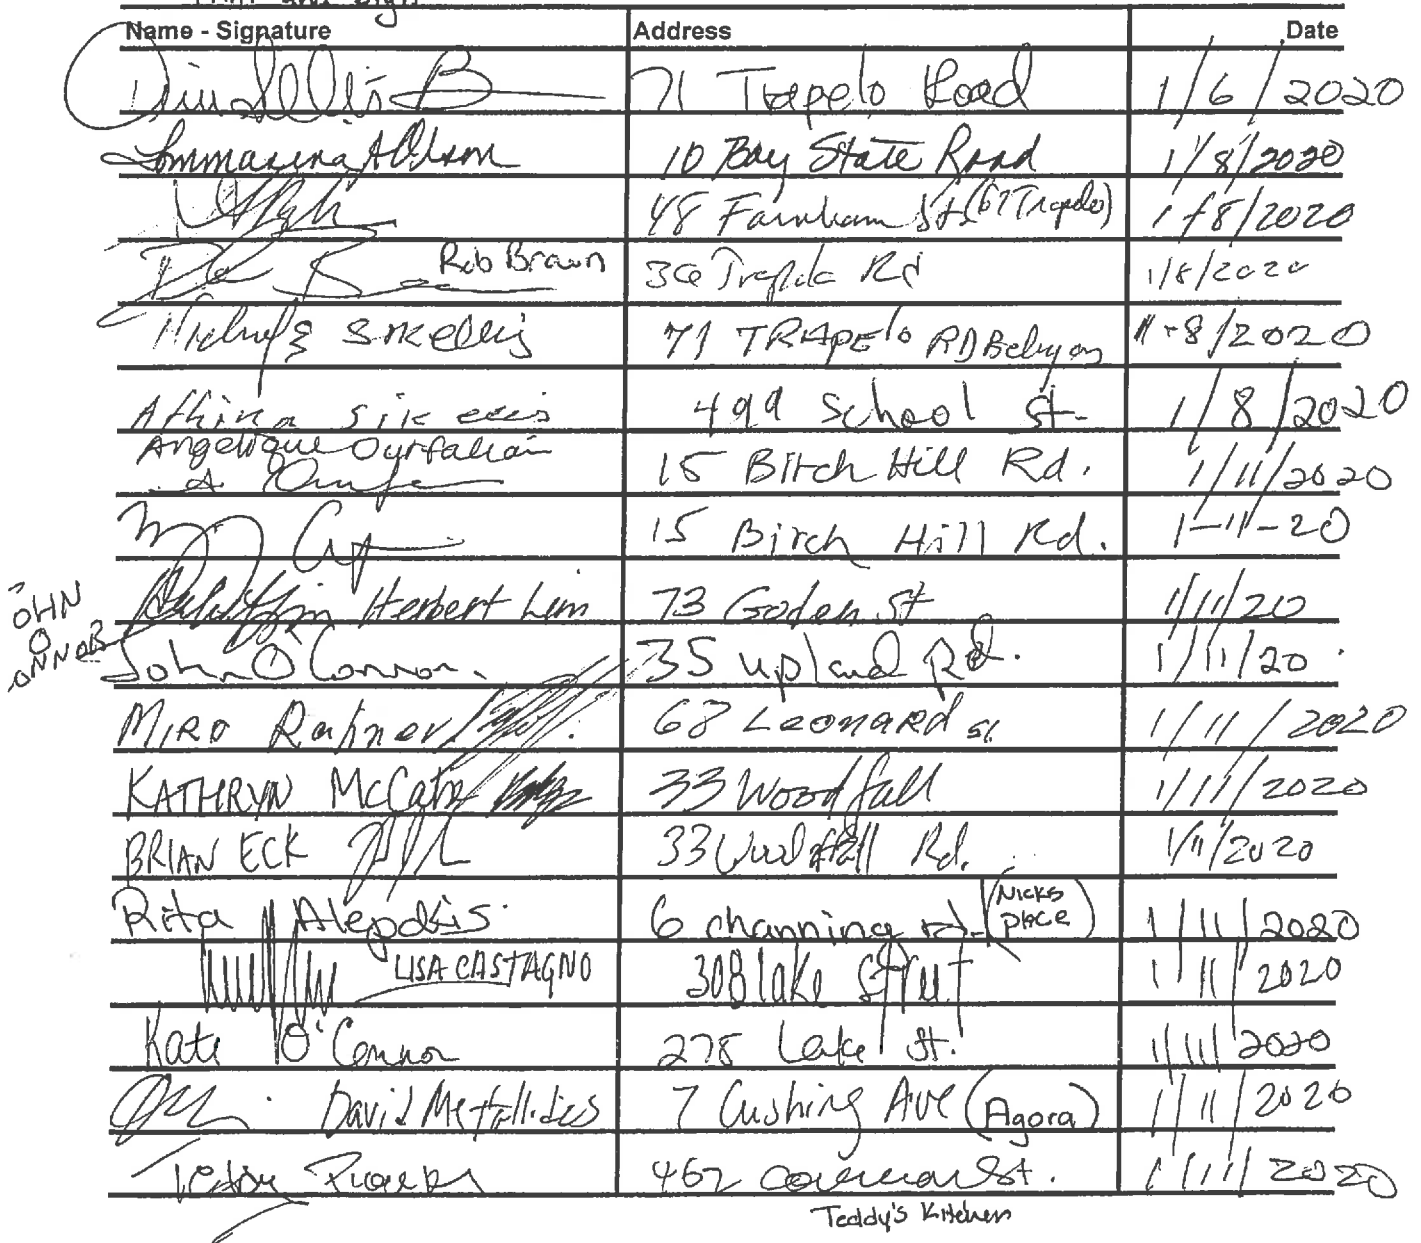 and Sign
Name - Signature Address Date
71 Trapelo Road 1/6/2020
Tommasina A Olson 10 Bay State Road 1/8/2020
48 Farnham St (67 Trapelo) 1/8/2020
Rob Brown 30 Trapelo Rd 1/8/2020
Sikellis 71 TRAPElo RD Belmon 1-8/2020
Athina Sikellis 499 School St. 1/8/2020
Angelique Ourfalian
A. 15 Birch Hill Rd. 1/11/2020
15 Birch Hill Rd. 1-11-20
Herbert Lim 73 Goden St 1/11/20
OHN
O
ONNOR
John O'Connor. 35 upland Rd. 1/11/20
MIRO 68 Leonard St 1/11/2020
KATHRYN McCabe 33 Woodfall 1/11/2020
BRIAN ECK 33 Woodfall Rd. 1/11/2020
Rita Alepakis 6 channing rd. (NICKS PLACE) 1/11/2020
LISA CASTAGNO 308 lake Street 1/11/2020
Kate O'Connor 278 Lake St. 1/11/2020
David Metallides 7 Cushing Ave (Agora) 1/11/2020
462 St. 1/11/2020
Teddy's Kitchen